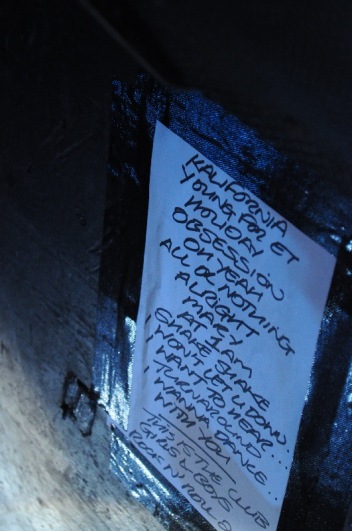 KALIFORNIA
YOUNG FOR ET
HOLIDAY
OBSESSION
OH YEAH
ALL OR NOTHING
ALRIGHT
MARY
AT 1 AM
SHAKE SHAKE
I WON'T LET U DOWN
I WANT TO HEAR...
TURNAROUND
I WANNA DANCE...
WITH YOU
THIS IS THE CLUB
GIRLS & BOYS
ROCK N ROLL